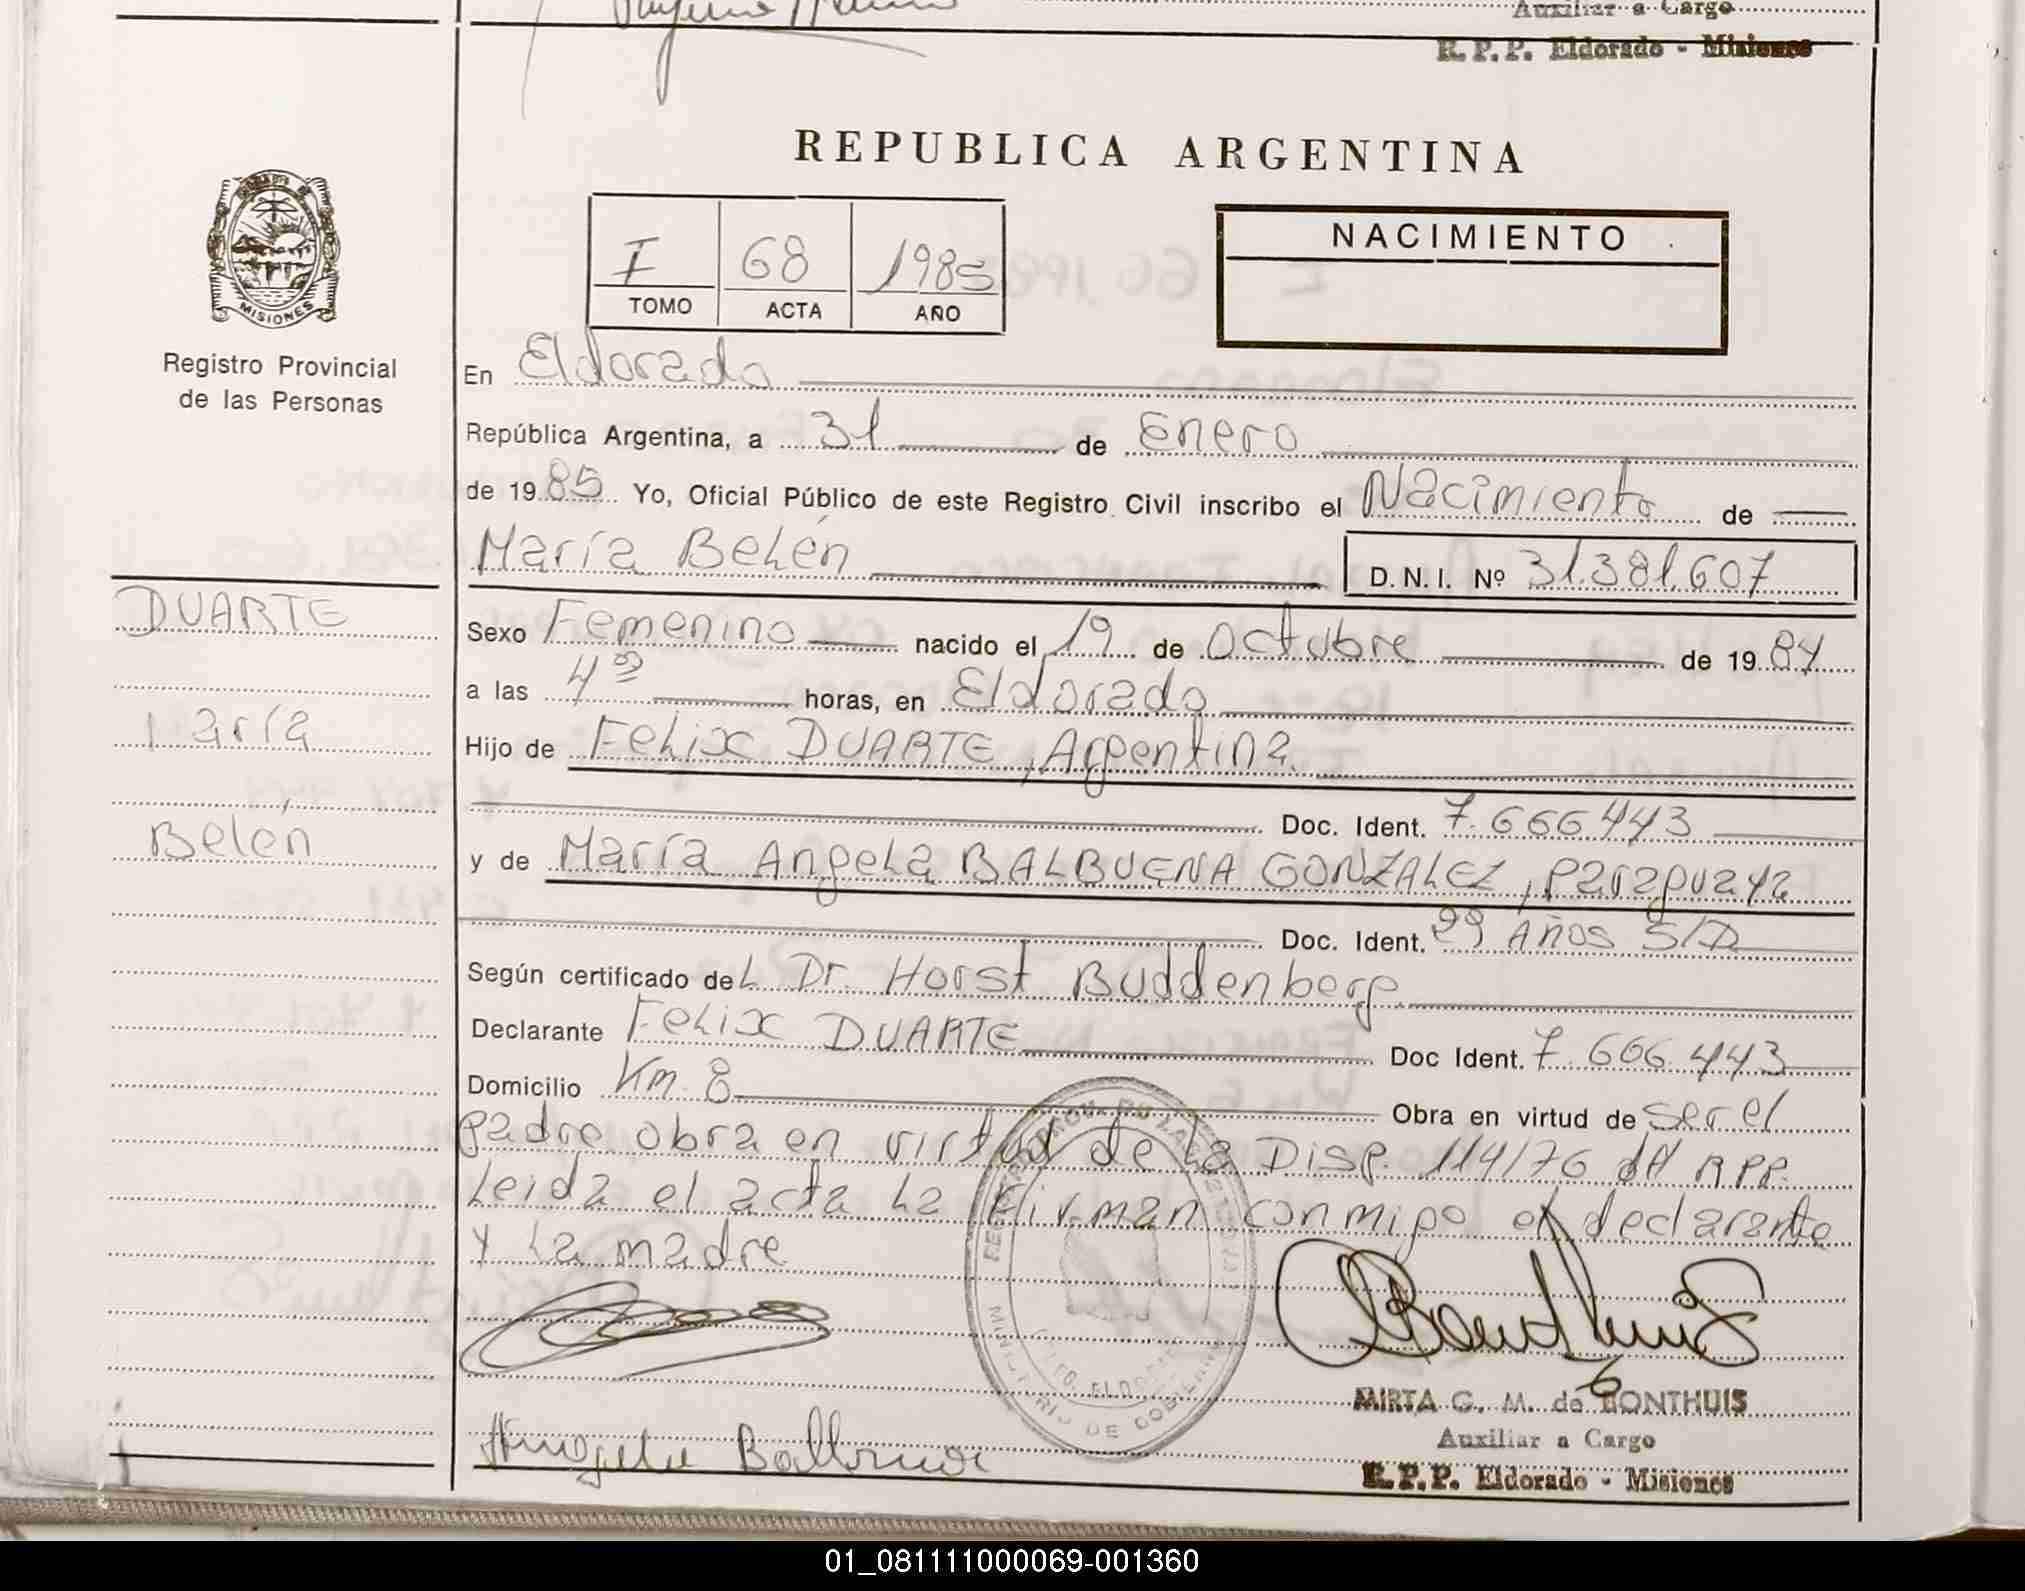 Auxiliar a Cargo
R. P. P. Eldorado - Misiones
REPUBLICA ARGENTINA
MISIONES
Registro Provincial
de las Personas
I 68 1985
TOMO ACTA AÑO
NACIMIENTO
En Eldorado
República Argentina, a 31 de Enero
de 1985 Yo, Oficial Público de este Registro Civil inscribo el Nacimiento de
María Belén D. N. I. Nº 31.381.607
DUARTE
María
Belén
Sexo Femenino nacido el 19 de Octubre de 1984
a las 4 horas, en Eldorado
Hijo de Felix DUARTE, Argentina
Doc. Ident. 7.666.443
y de María Angela BALBUENA GONZALEZ, paraguaya
Doc. Ident. 29 Años S/D
Según certificado del Dr. Horst Buddenberg
Declarante Felix DUARTE Doc Ident. 7.666.443
Domicilio Km. 8 Obra en virtud de ser el
padre obra en virtud de la Disp. 114/76 del RPP.
Leida el acta la firman conmigo el declarante
y la madre
MIRTA G. M. de BONTHUIS
Auxiliar a Cargo
R. P. P. Eldorado - Misiones
01_081111000069-001360